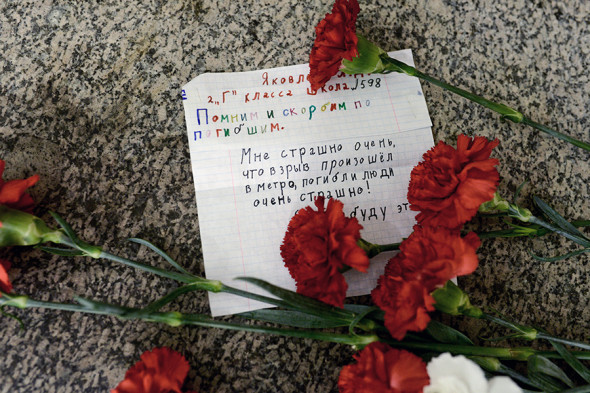 2 „Г" класса школа 1598
Помним и скорбим по
погибшим.
Мне страшно очень,
что взрыв произошёл
в метро, погибли люди
очень страшно!
буду